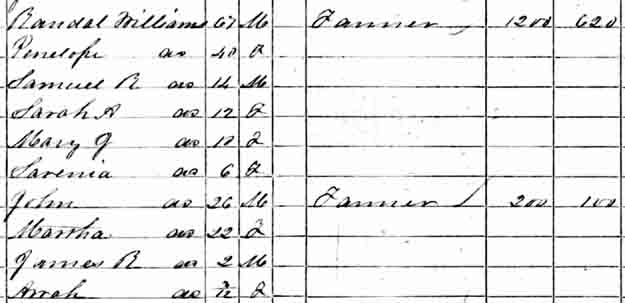 Randal Williams 67 M Farmer 1200 620
Penelope do 40 F
Samuel R do 14 M
Sarah A do 12 F
Mary J do 10 F
Savenia do 6 F
John do 26 M Farmer 200 100
Martha do 22 F
James R do 2 M
do F